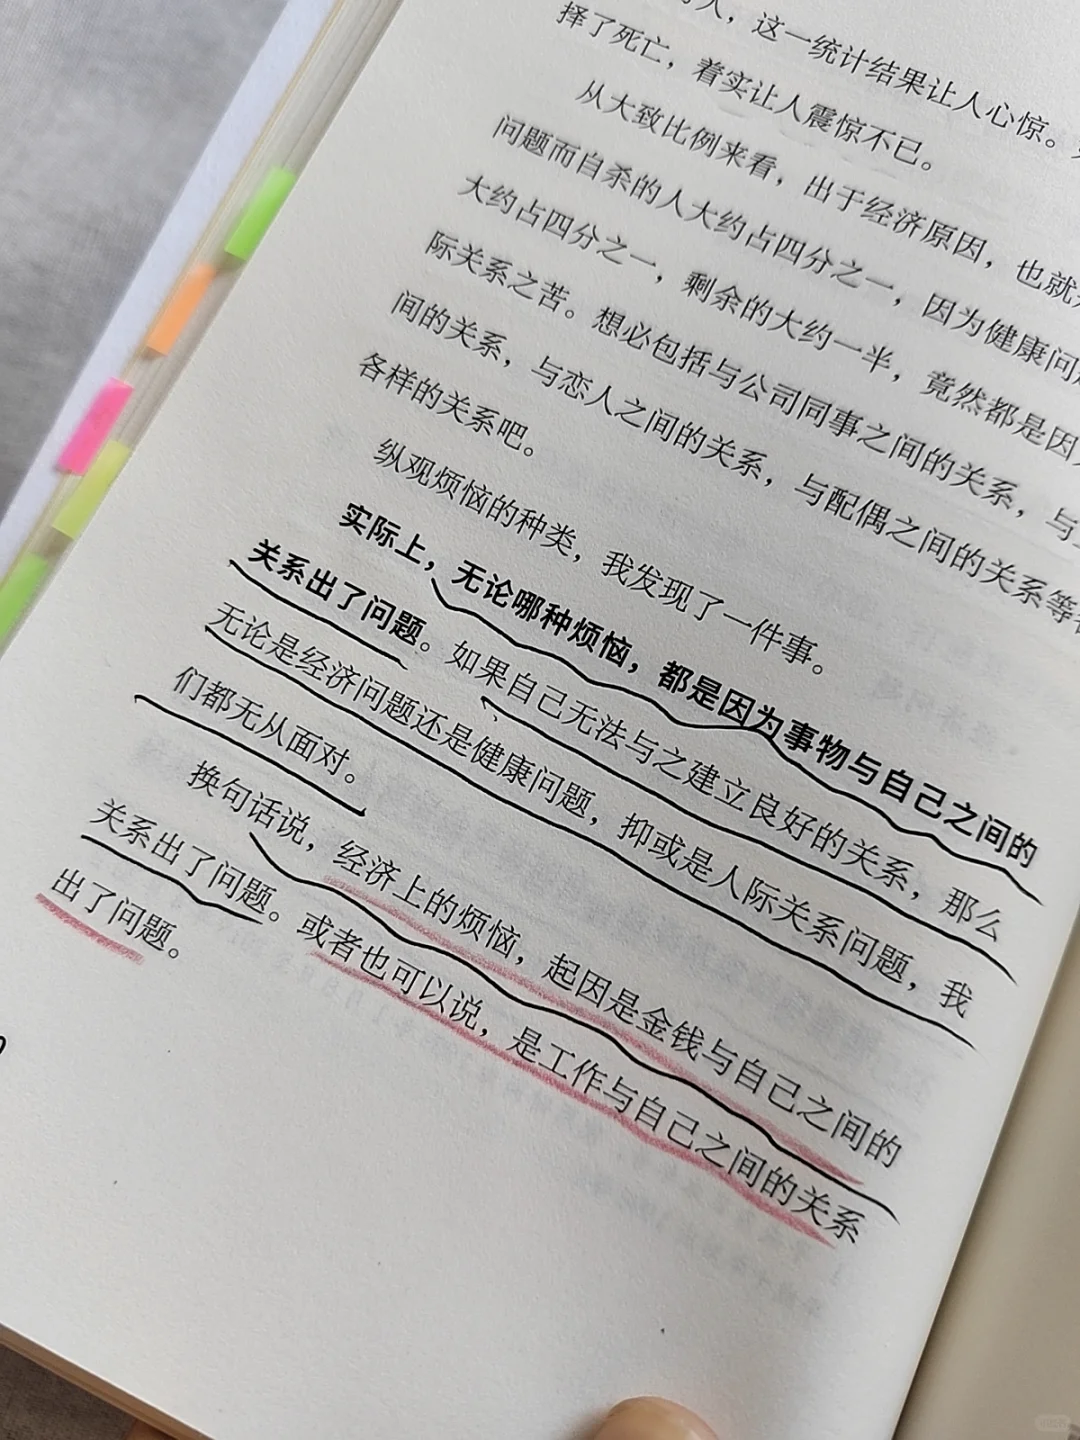 人，这一统计结果让人心惊。
择了死亡，着实让人震惊不已。
从大致比例来看，出于经济原因，也就
问题而自杀的人大约占四分之一，因为健康问
大约占四分之一，剩余的大约一半，竟然都是因
际关系之苦。想必包括与公司同事之间的关系，与
间的关系，与恋人之间的关系，与配偶之间的关系等
各样的关系吧。
纵观烦恼的种类，我发现了一件事。
实际上，无论哪种烦恼，都是因为事物与自己之间的
关系出了问题。如果自己无法与之建立良好的关系，那么
无论是经济问题还是健康问题，抑或是人际关系问题，我
们都无从面对。
换句话说，经济上的烦恼，起因是金钱与自己之间的
关系出了问题。或者也可以说，是工作与自己之间的关系
出了问题。